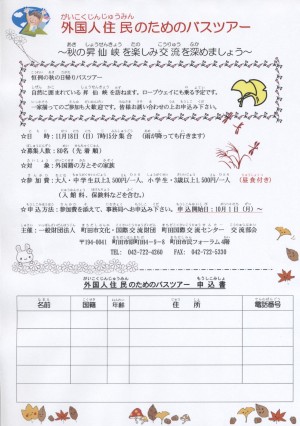 がいこくじんじゅうみん
外国人住民のためのバスツアー
あき しょうせんきょう たの こうりゅう ふか
～秋の昇仙峡を楽しみ交流を深めましょう～
恒例の秋の日帰りバスツアー
自然に恵まれている昇仙峡を訪れます。ロープウェイにも乗る予定です。
一家揃ってのご参加も大歓迎です。皆様お誘い合わせの上お申込み下さい。
☆日 時：11月18日（日）7時15分集合（雨が降っても行きます）
☆募集人数：80名（先着順）
☆対 象：外国籍の方とその家族
☆参加費：大人・中学生以上3,500円/一人、小学生・3歳以上1,500円/一人（昼食付き）
（入館料、保険料などを含む。）
☆申込方法：参加費を添えて、事務局へお申込み下さい。申込開始日：10月1日（月）～
主催：一般財団法人 町田市文化・国際交流財団 町田国際交流センター 交流部会
〒194-0041 町田市原町田4－9－8 町田市民フォーラム4階
TEL: 042-722-4260 FAX: 042-722-5330
がいこくじんじゅうみん もうしこみしょ
外国人住民のためのバスツアー 申込書
名前 国籍 年齢 住所 電話番号